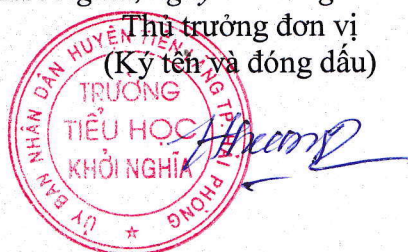 Thủ trưởng đơn vị
(Ký tên và đóng dấu)
ỦY BAN NHÂN DÂN HUYỆN TIÊN LÃNG TP HẢI PHÒNG
TRƯỜNG
TIỂU HỌC
KHỞI NGHĨA